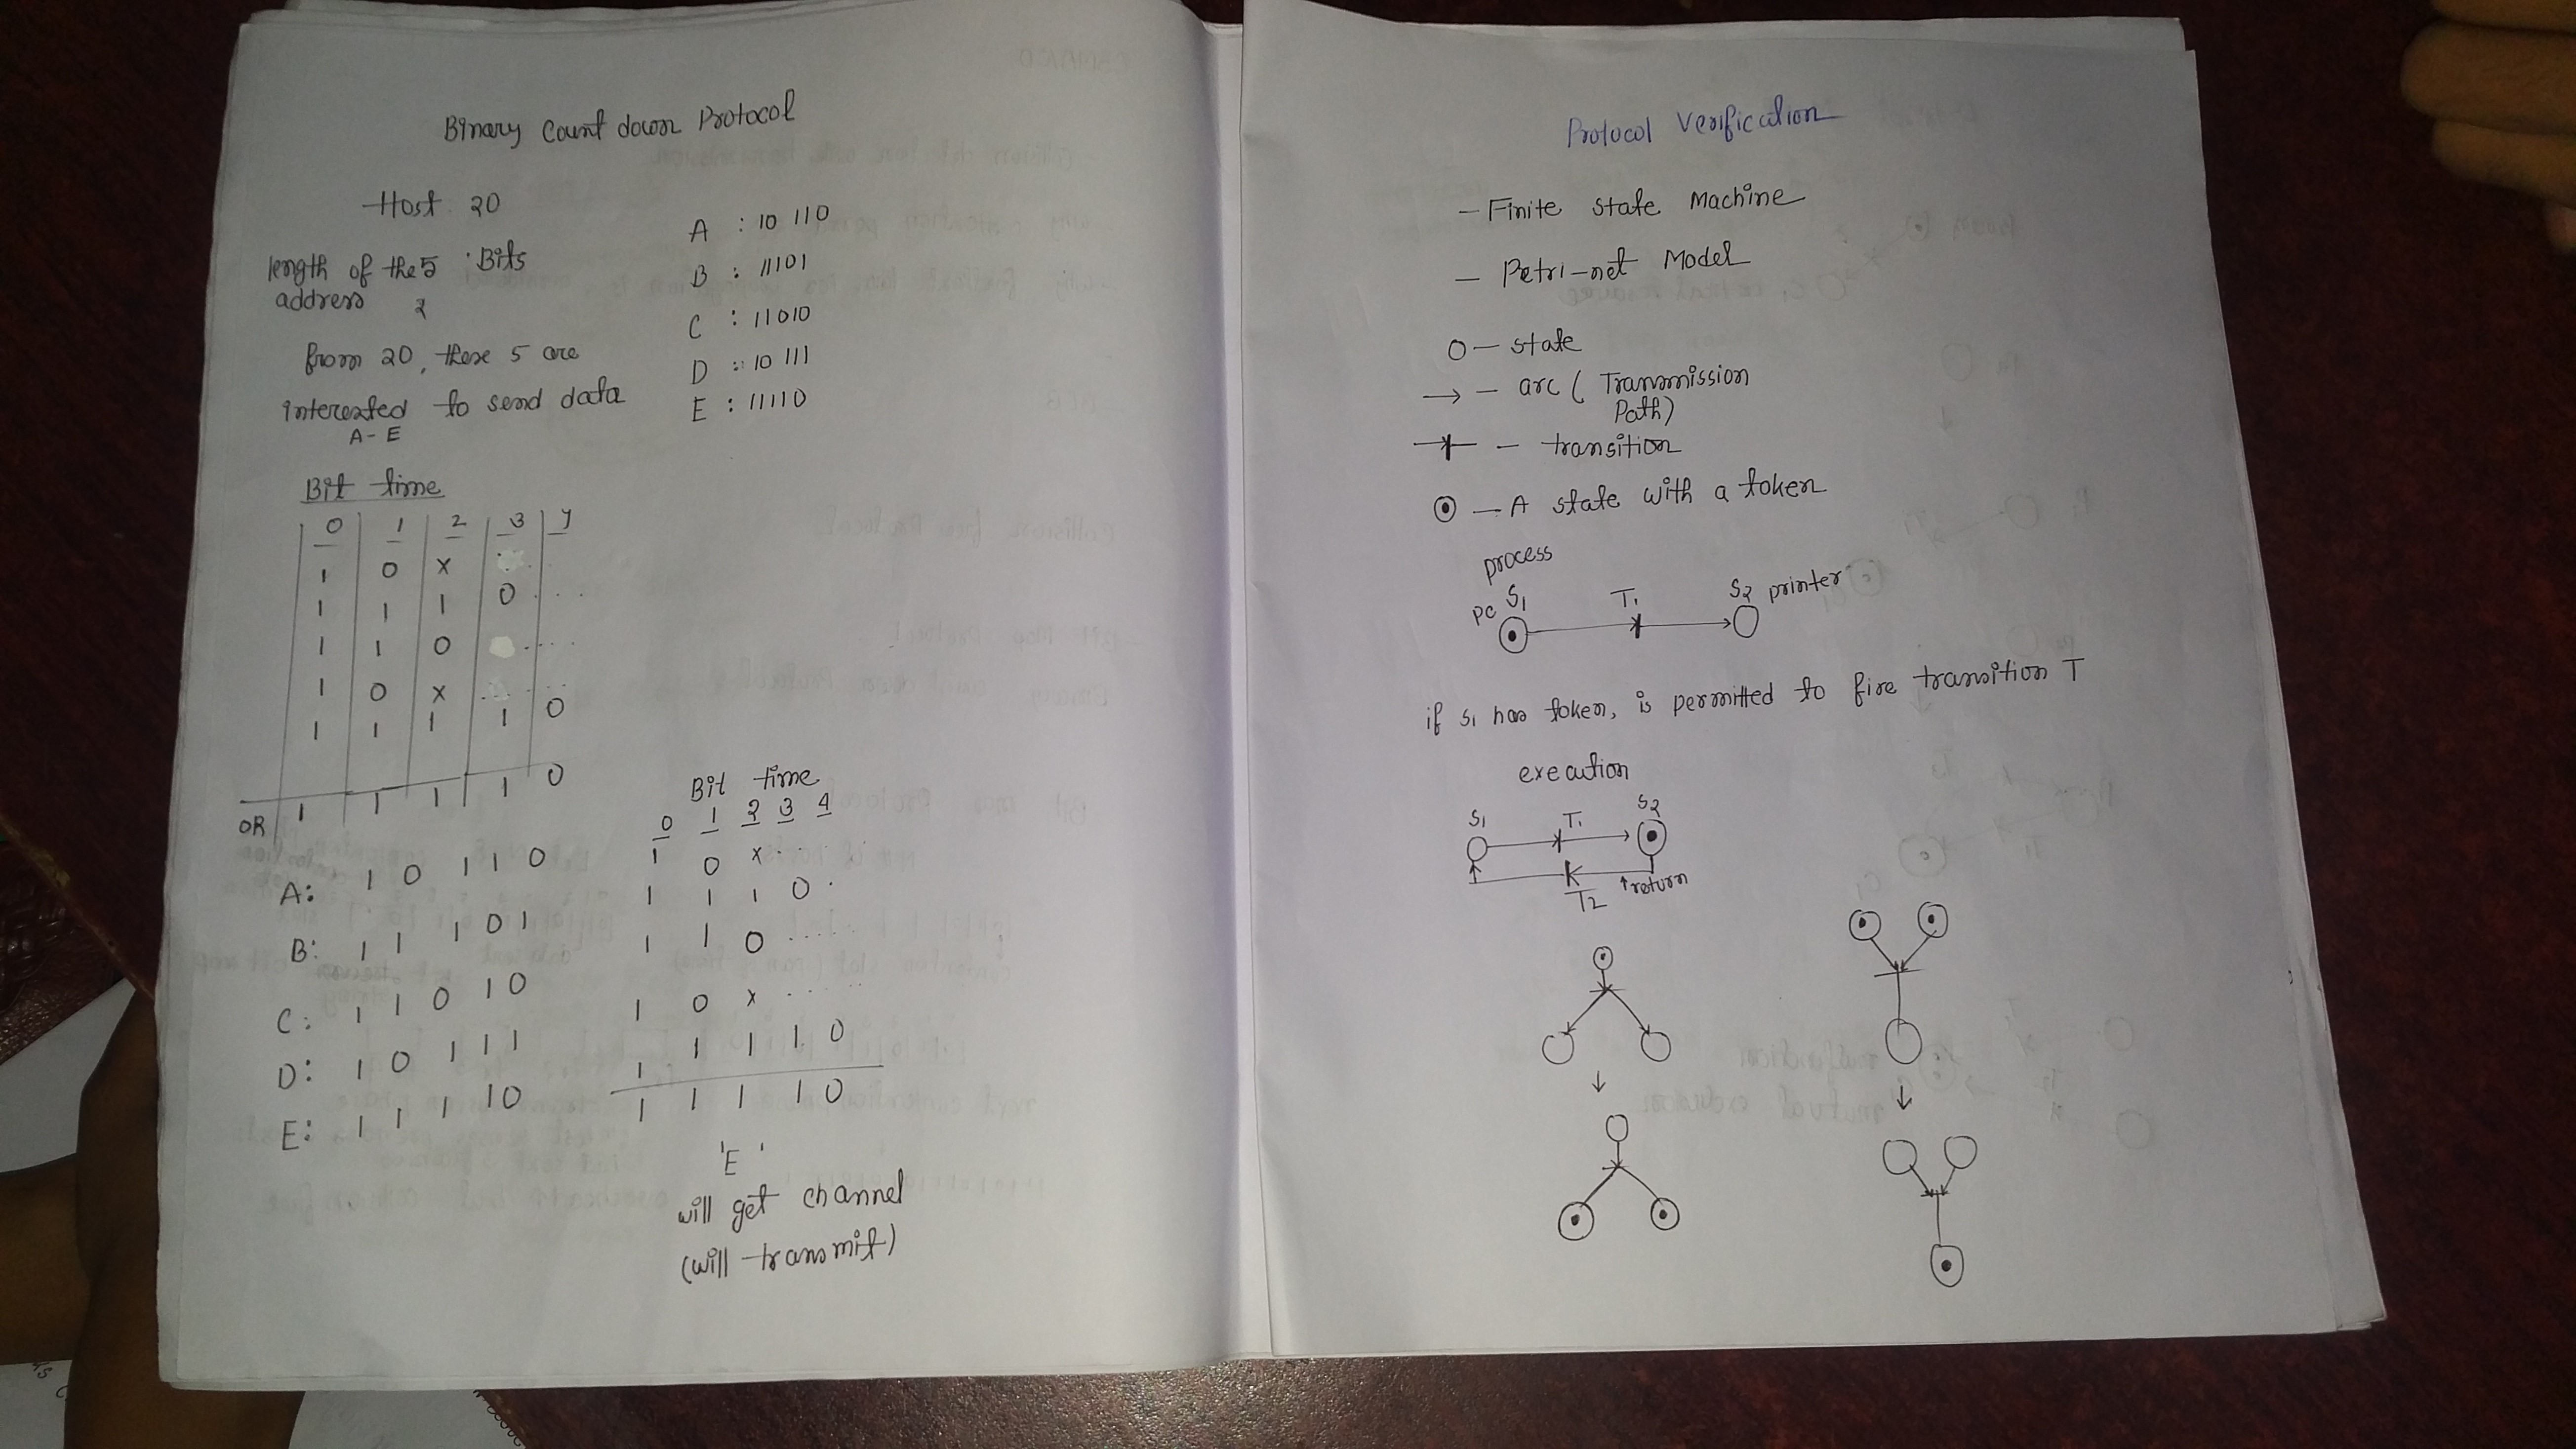 Binary Count down Protocol
Host 20
length of the 5 Bits
address
from 20, these 5 are
interested to send data
A - E
A : 10 110
B : 11101
C : 11010
D : 10 111
E : 11110
Bit time
0 1 2 3 4
1 0 x
1 1 1 0 . . .
1 1 0 . . . .
1 0 x . . . .
1 1 1 1 0
OR 1 1 1 1 0
Bit time
0 1 2 3 4
A: 1 0 1 1 0 1 0 x . . . .
B: 1 1 1 0 1 1 1 1 0 .
C: 1 1 0 1 0 1 1 0 . . . .
D: 1 0 1 1 1 1 0 x . . . .
E: 1 1 1 1 0 1 1 1 1 0
1 1 1 1 0
'E'
will get channel
(will transmit)
Protocol Verification
- Finite state Machine
- Petri-net Model
O - state
→ - arc ( Transmission
Path)
- transition
- A state with a token
process
PC S1 T1 S2 printer
if S1 has token, is permitted to fire transition T
execution
S1 T1 S2
T2 ↑return